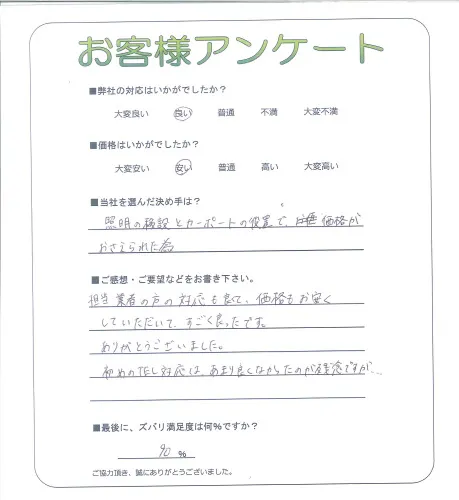 お客様アンケート
■弊社の対応はいかがでしたか？
大変良い 良い 普通 不満 大変不満
■価格はいかがでしたか？
大変安い 安い 普通 高い 大変高い
■当社を選んだ決め手は？
照明の移設とカーポートの設置で、価格が
おさえられた為
■ご感想・ご要望などをお書き下さい。
担当業者の方の対応も良くて、価格もお安く
していただいて、すごく良ったです。
ありがとうございました。
初めの対応は、あまり良くなかったのが残念ですが、
■最後に、ズバリ満足度は何％ですか？
90 %
ご協力頂き、誠にありがとうございました。